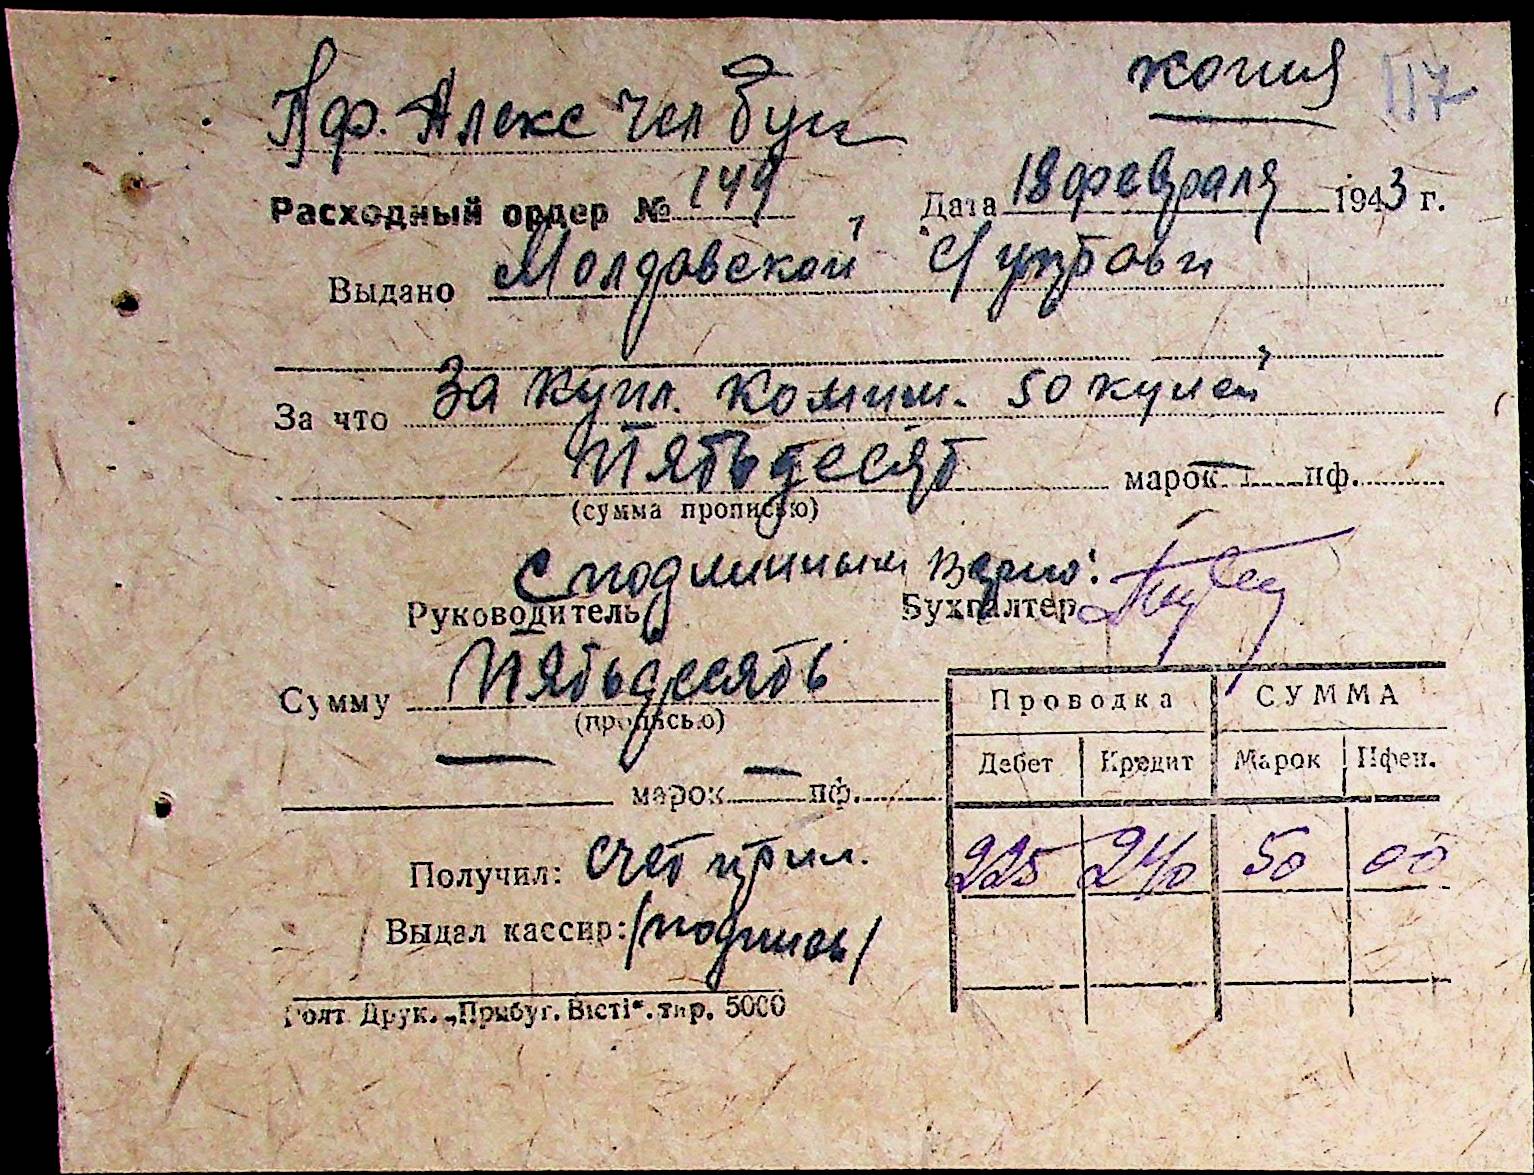 копия 117
Пф. Алекс Чел бум
Расходный ордер № 149 Дата 18 февраля 1943 г.
Выдано Молдавской
За что За купл. комит. 50 кулей
Пятьдесят марок — пф.
(сумма прописью)
С подлинным верно:
Руководитель Бухгалтер
Сумму Пятьдесять
(прописью)
— марок — пф.
Проводка СУММА
Дебет Кредит Марок Пфен.
225 240 50 00
Получил: счет прил.
Выдал кассир: /подпись/
Голт Друк. „Прибуг. Вісті“. тир. 5000